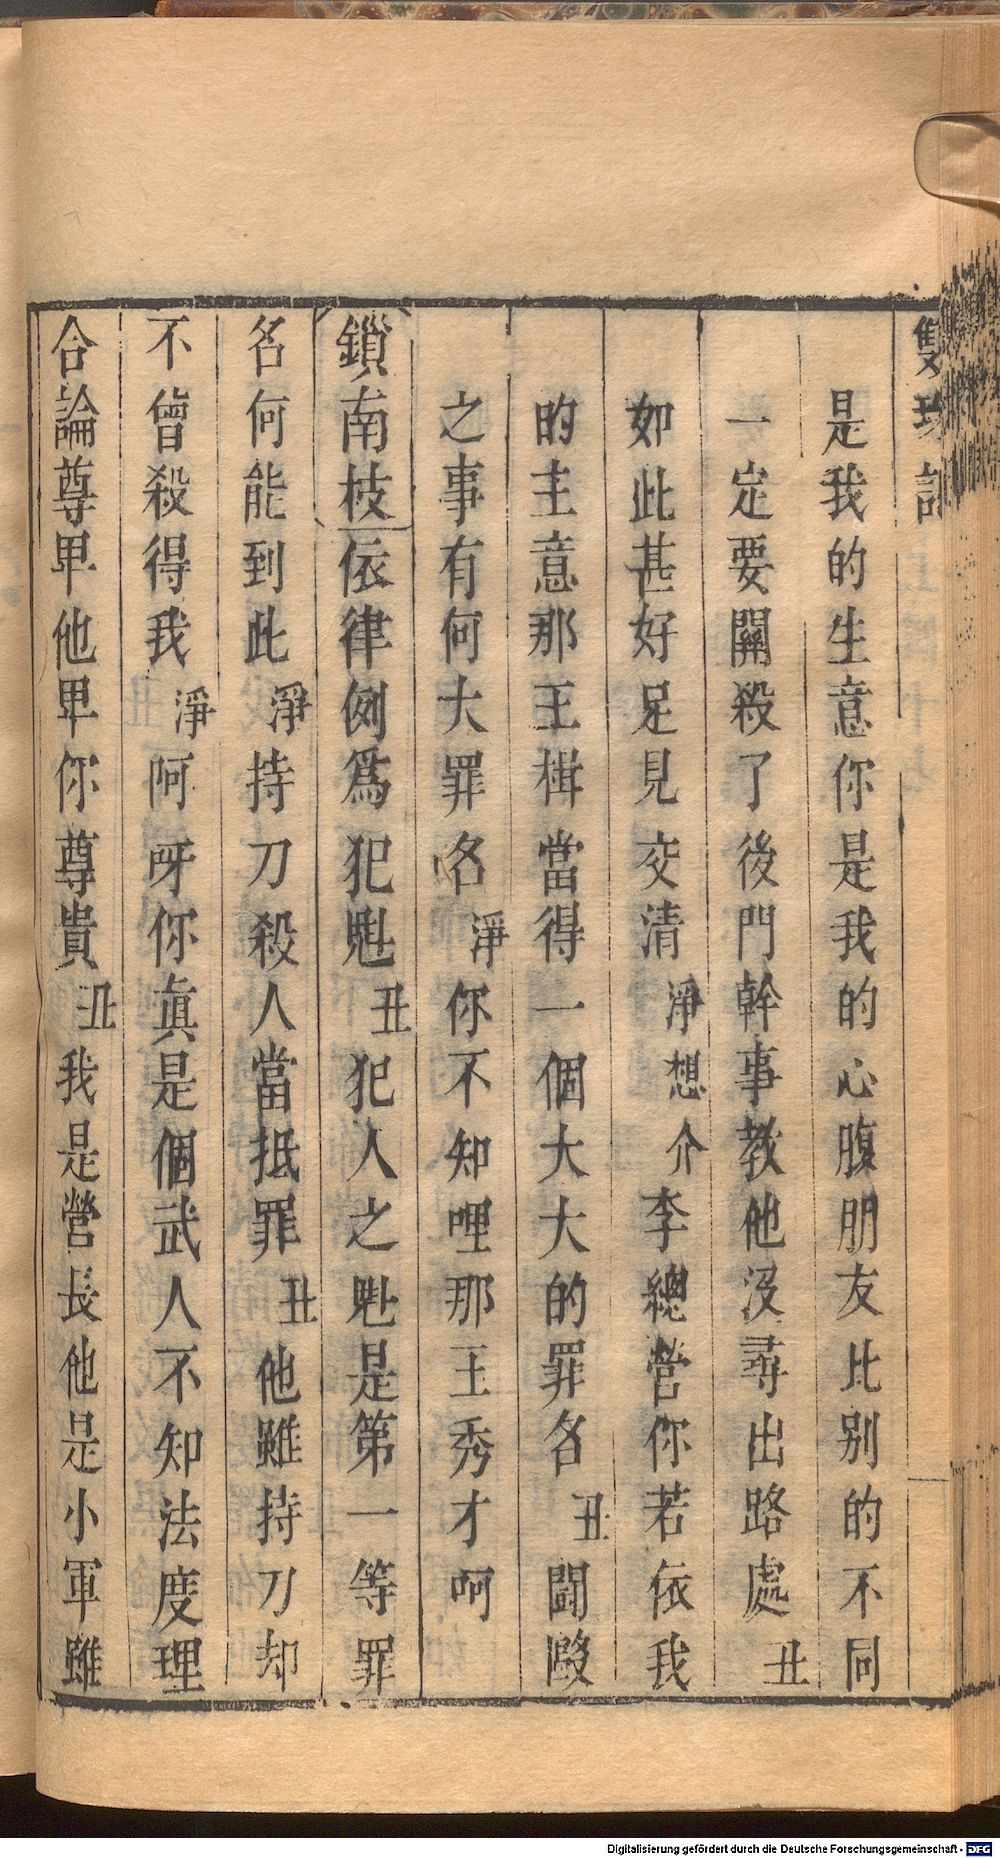 雙珠記
是我的生意你是我的心腹朋友比别的不同
一定要關殺了後門幹事教他沒尋出路處丑
如此甚好足見交清淨想介李總營你若依我
的主意那王楫當得一個大大的罪名丑鬪毆
之事有何大罪名淨你不知哩那王秀才呵
鎻南枝依律例爲犯魁丑犯人之魁是第一等罪
名何能到此淨持刀殺人當抵罪丑他雖持刀却
不曾殺得我淨阿呀你眞是個武人不知法度理
合論尊卑他卑你尊貴丑我是營長他是小軍雖
Digitalisierung gefördert durch die Deutsche Forschungsgemeinschaft - DFG